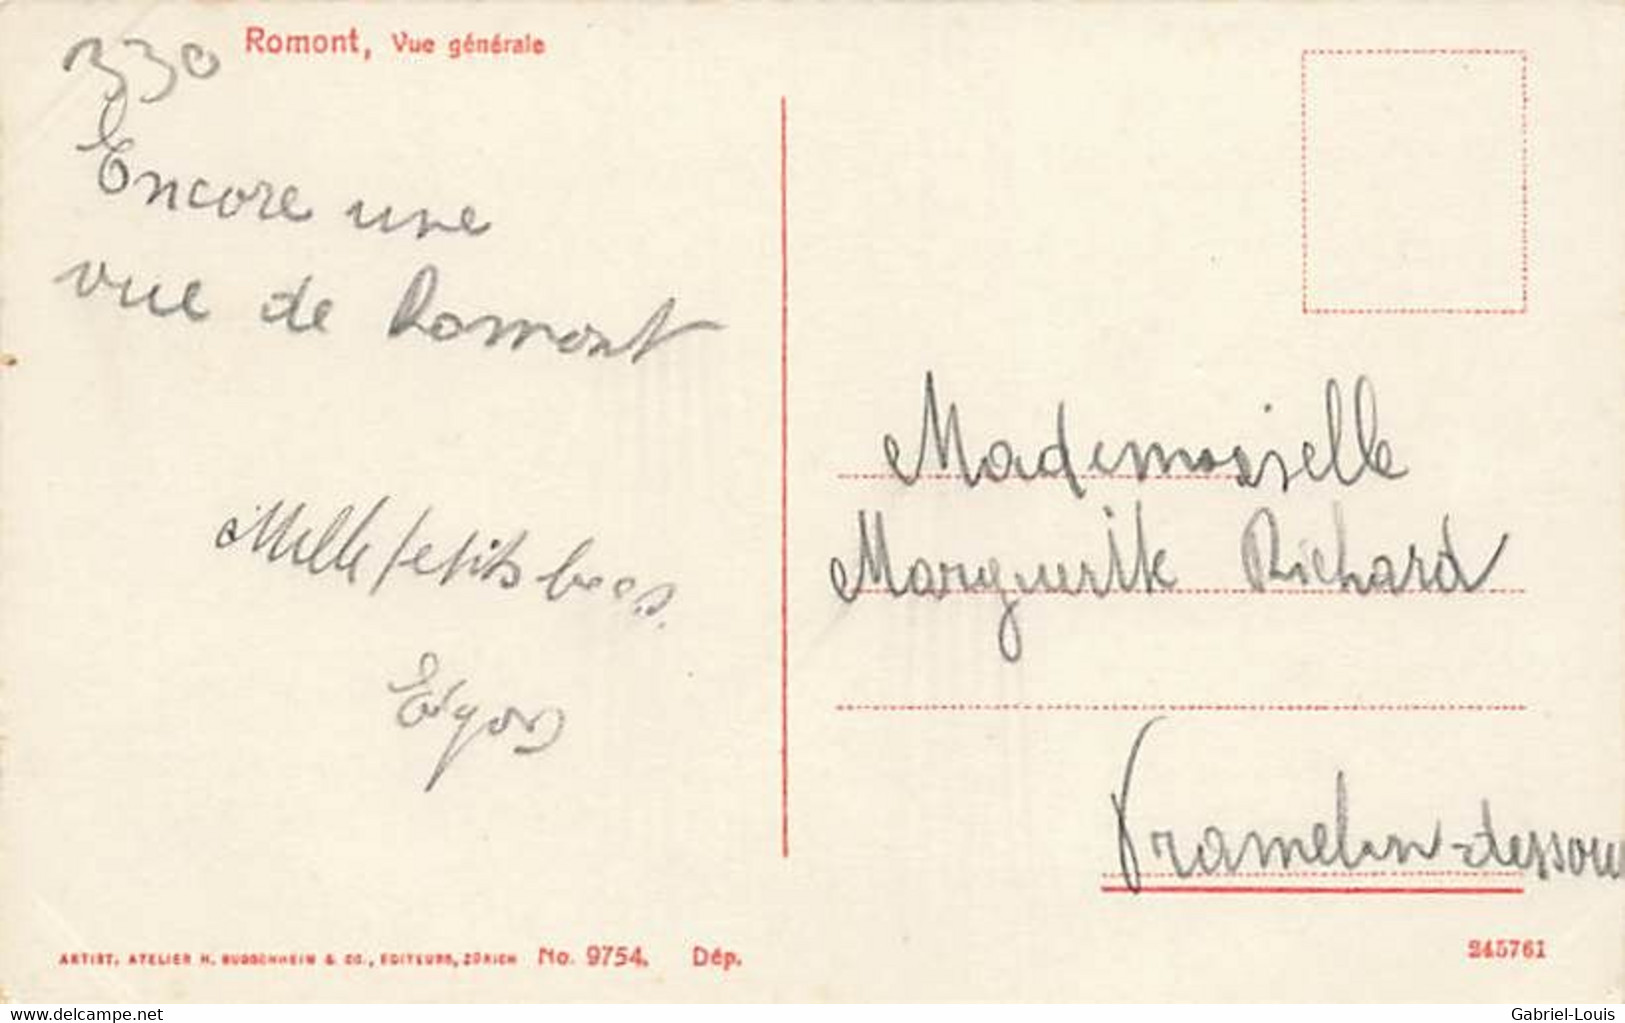 330
Romont, Vue générale
Encore une
vue de Romont
Mille petits becs.
Mademoiselle
Marguerite Richard
Tramelan-dessous
ARTIST. ATELIER H. GUGGENHEIM & CO., EDITEURS, ZÜRICH No. 9754. Dép.
245761
delcampe.net
Gabriel-Louis